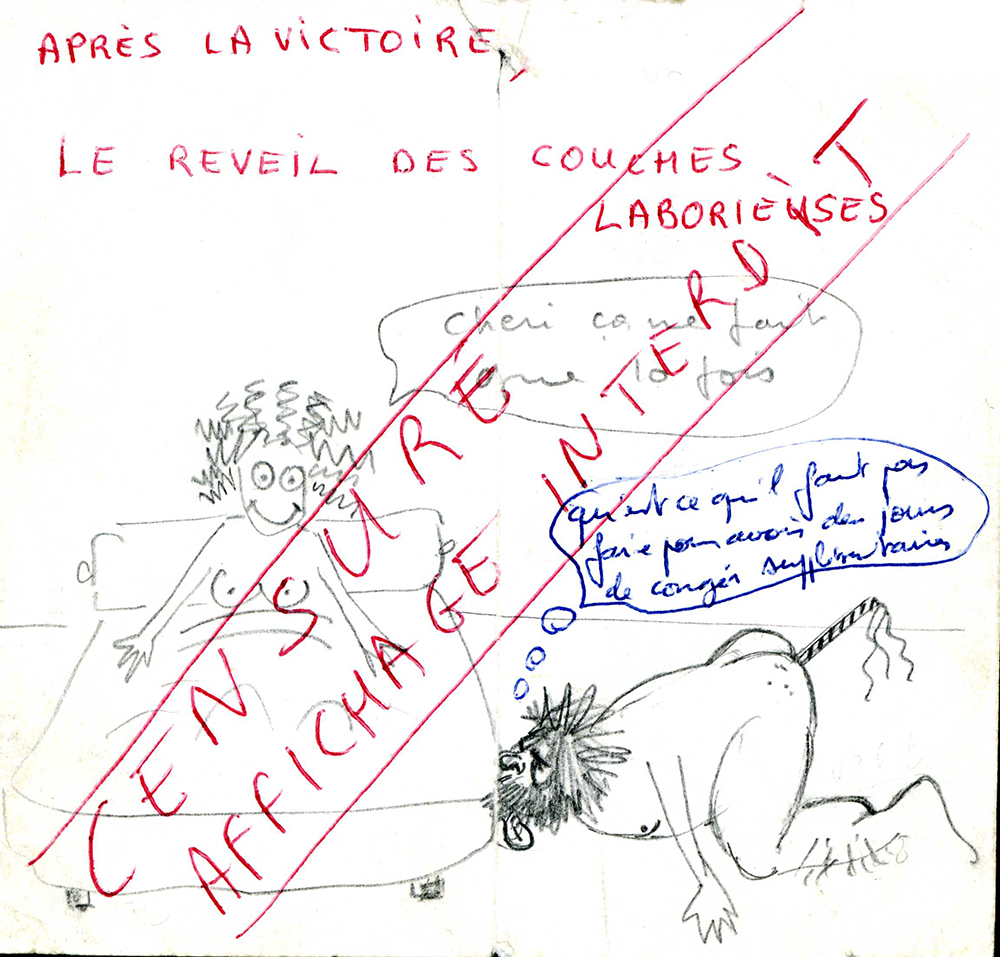 APRÈS LA VICTOIRE,
LE REVEIL DES COUCHES
LABORIEUSES
cheri ça ne fait
que 10 fois
qu'est ce qu'il faut pas
faire pour avoir des jours
de congés supplémentaires
CENSURÉ
AFFICHAGE INTERDIT